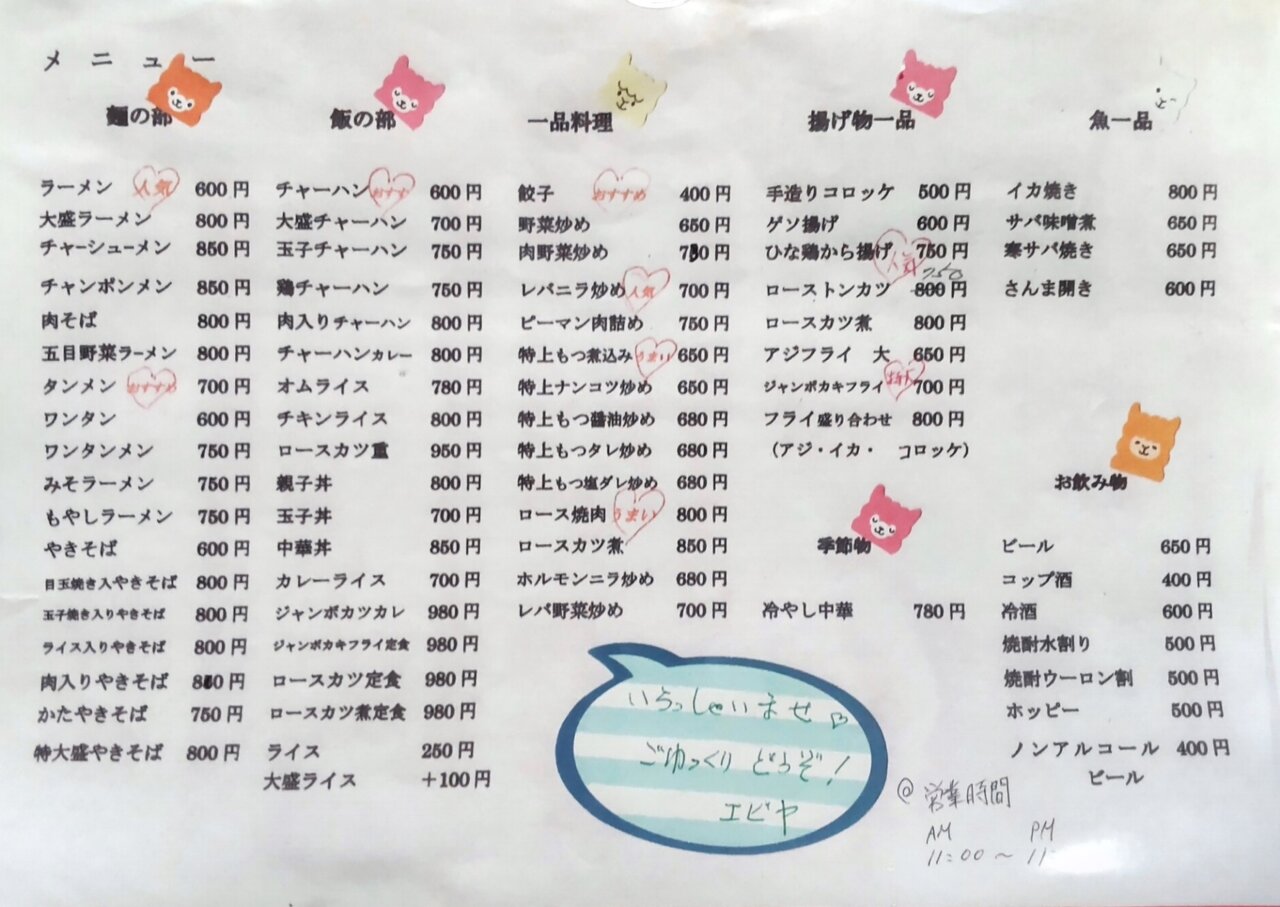 メニュー
麺の部
ラーメン 人気 600円
大盛ラーメン 800円
チャーシューメン 850円
チャンポンメン 850円
肉そば 800円
五目野菜ラーメン 800円
タンメン おすすめ 700円
ワンタン 600円
ワンタンメン 750円
みそラーメン 750円
もやしラーメン 750円
やきそば 600円
目玉焼き入やきそば 800円
玉子焼き入りやきそば 800円
ライス入りやきそば 800円
肉入りやきそば 円
かたやきそば 750円
特大盛やきそば 800円
飯の部
チャーハン おすす 600円
大盛チャーハン 700円
玉子チャーハン 750円
鶏チャーハン 750円
肉入りチャーハン 800円
チャーハンカレー 800円
オムライス 780円
チキンライス 800円
ロースカツ重 950円
親子丼 800円
玉子丼 700円
中華丼 850円
カレーライス 700円
ジャンボカツカレ 980円
ジャンボカキフライ定食 980円
ロースカツ定食 980円
ロースカツ煮定食 980円
ライス 250円
大盛ライス +100円
一品料理
餃子 おすすめ 400円
野菜炒め 650円
肉野菜炒め 円
レバニラ炒め 人気 700円
ピーマン肉詰め 750円
特上もつ煮込み うまい 650円
特上ナンコツ炒め 650円
特上もつ醤油炒め 680円
特上もつタレ炒め 680円
特上もつ塩ダレ炒め 680円
ロース焼肉 うまい 800円
ロースカツ煮 850円
ホルモンニラ炒め 680円
レバ野菜炒め 700円
揚げ物一品
手造りコロッケ 500円
ゲソ揚げ 600円
ひな鶏から揚げ 人気 750円
750
ローストンカツ 800円
ロースカツ煮 800円
アジフライ 大 650円
ジャンボカキフライ 700円
フライ盛り合わせ 800円
(アジ・イカ・ コロッケ)
季節物
冷やし中華 780円
魚一品
イカ焼き 800円
サバ味噌煮 650円
寒サバ焼き 650円
さんま開き 600円
お飲み物
ビール 650円
コップ酒 400円
冷酒 600円
焼酎水割り 500円
焼酎ウーロン割 500円
ホッピー 500円
ノンアルコール 400円
ビール
いらっしゃいませ♡
ごゆっくりどうぞ!
エビヤ
@ 営業時間
AM PM
11:00 ~ 11: